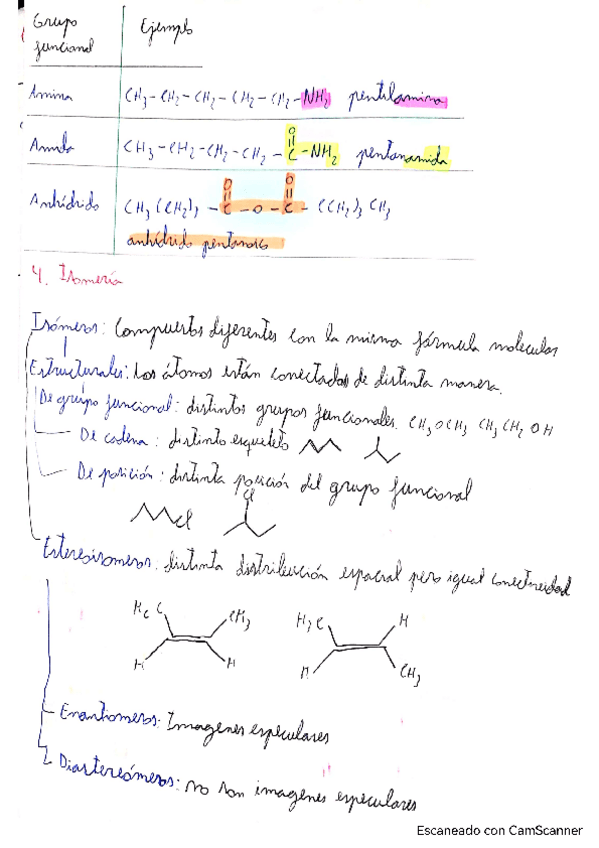 Grupo funcional
Ejemplo
Amina
CH3-CH2-CH2-CH2-CH2-NH2 pentilamina
Amida
O
CH3-CH2-CH2-CH2-C-NH2 pentanamida
Anhídrido
O O
CH3(CH2)3-C-O-C-(CH2)3CH3
anhídrido pentanoico
4. Isomería
Isómeros: Compuestos diferentes con la misma fórmula molecular
Estructurales: Los átomos están conectados de distinta manera.
De grupo funcional: distintos grupos funcionales. CH3OCH3 CH3CH2OH
De cadena: distinto esqueleto
De posición: distinta posición del grupo funcional
Cl
Cl
Estereoisómeros: distinta distribución espacial pero igual conectividad
H3C CH3 H3C H
H H H CH3
Enantiomeros: Imagenes especulares
Diastereómeros: no son imagenes especulares
Escaneado con CamScanner